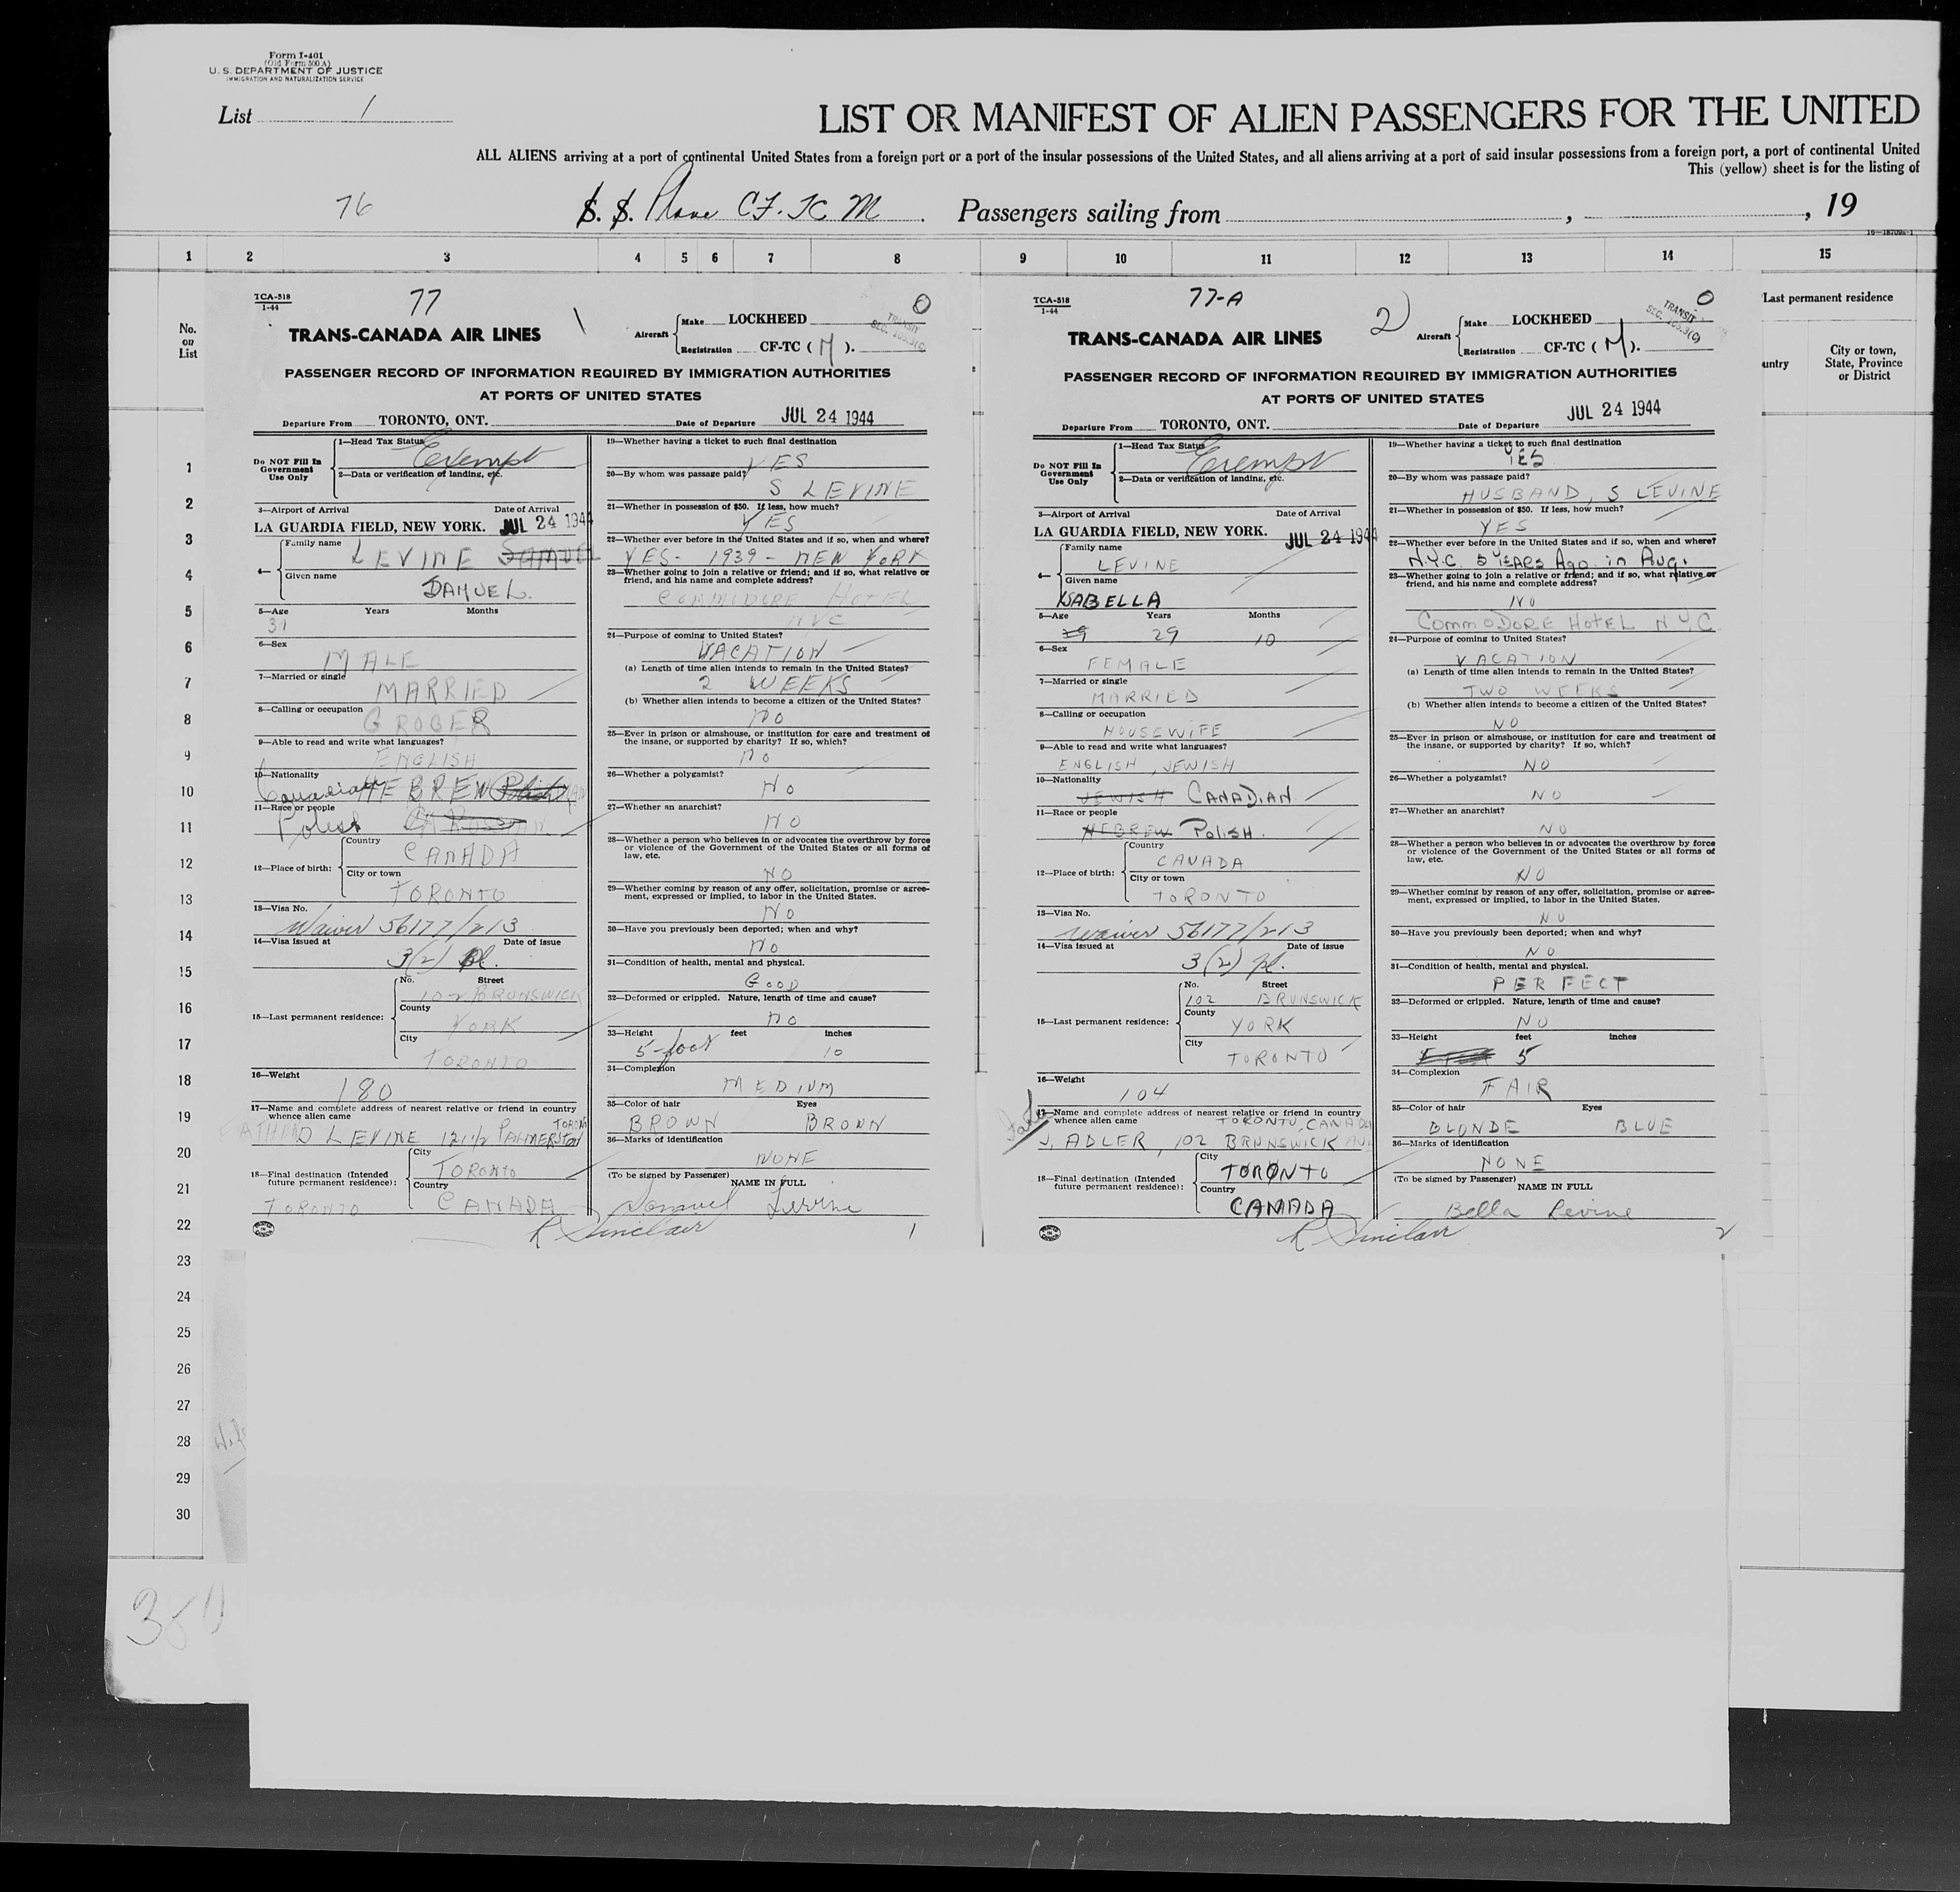 Form I-401
(Old Form 500 A)
U. S. DEPARTMENT OF JUSTICE
IMMIGRATION AND NATURALIZATION SERVICE
List 1
LIST OR MANIFEST OF ALIEN PASSENGERS FOR THE UNITED
ALL ALIENS arriving at a port of continental United States from a foreign port or a port of the insular possessions of the United States, and all aliens arriving at a port of said insular possessions from a foreign port, a port of continental United
This (yellow) sheet is for the listing of
76 S. S. Plane CF. TC M Passengers sailing from , , 19
1 2 3 4 5 6 7 8 9 10 11 12 13 14 15
No. on List
Last permanent residence
untry
City or town, State, Province or District
TCA-518
1-44
77
1
TRANS-CANADA AIR LINES
Aircraft
Make LOCKHEED
Registration CF-TC ( M ).
TRANSIT
SEC. 105.3(C)
PASSENGER RECORD OF INFORMATION REQUIRED BY IMMIGRATION AUTHORITIES
AT PORTS OF UNITED STATES
Departure From TORONTO, ONT. Date of Departure JUL 24 1944
Do NOT Fill In Government Use Only
1—Head Tax Status Exempt
2—Data or verification of landing, etc.
3—Airport of Arrival Date of Arrival
LA GUARDIA FIELD, NEW YORK. JUL 24 1944
4— Family name LEVINE SAMUEL
Given name SAMUEL.
5—Age Years Months
31
6—Sex
MALE
7—Married or single
MARRIED
8—Calling or occupation
GROCER
9—Able to read and write what languages?
ENGLISH
10—Nationality
Canadian HEBREW Polish
11—Race or people
Polish
12—Place of birth: Country CANADA
City or town TORONTO
13—Visa No.
Waiver 56177/213
14—Visa issued at Date of issue
3(2) pl.
15—Last permanent residence: No. Street
102 BRUNSWICK
County YORK
City TORONTO
16—Weight
180
17—Name and complete address of nearest relative or friend in country whence alien came
LEVINE 121 1/2 PALMERSTON TORONTO
18—Final destination (Intended future permanent residence): City TORONTO
Country CANADA
TORONTO
19—Whether having a ticket to such final destination
YES
20—By whom was passage paid?
S LEVINE
21—Whether in possession of $50. If less, how much?
YES
22—Whether ever before in the United States and if so, when and where?
YES- 1939 - NEW YORK
23—Whether going to join a relative or friend; and if so, what relative or friend, and his name and complete address?
COMMODORE HOTEL
NYC
24—Purpose of coming to United States?
VACATION
(a) Length of time alien intends to remain in the United States?
2 WEEKS
(b) Whether alien intends to become a citizen of the United States?
NO
25—Ever in prison or almshouse, or institution for care and treatment of the insane, or supported by charity? If so, which?
NO
26—Whether a polygamist?
NO
27—Whether an anarchist?
NO
28—Whether a person who believes in or advocates the overthrow by force or violence of the Government of the United States or all forms of law, etc.
NO
29—Whether coming by reason of any offer, solicitation, promise or agreement, expressed or implied, to labor in the United States.
NO
30—Have you previously been deported; when and why?
NO
31—Condition of health, mental and physical.
GOOD
32—Deformed or crippled. Nature, length of time and cause?
NO
33—Height feet inches
5-foot 10
34—Complexion
MEDIUM
35—Color of hair Eyes
BROWN BROWN
36—Marks of identification
NONE
(To be signed by Passenger)
NAME IN FULL
Samuel Levine
R Sinclair 1
TCA-518
1-44
77-A
2
TRANS-CANADA AIR LINES
Aircraft
Make LOCKHEED
Registration CF-TC ( M ).
TRANSIT
SEC. 105.3(C)
PASSENGER RECORD OF INFORMATION REQUIRED BY IMMIGRATION AUTHORITIES
AT PORTS OF UNITED STATES
Departure From TORONTO, ONT. Date of Departure JUL 24 1944
Do NOT Fill In Government Use Only
1—Head Tax Status Exempt
2—Data or verification of landing, etc.
3—Airport of Arrival Date of Arrival
LA GUARDIA FIELD, NEW YORK. JUL 24 1944
4— Family name LEVINE
Given name ISABELLA
5—Age Years Months
29 29 10
6—Sex
FEMALE
7—Married or single
MARRIED
8—Calling or occupation
HOUSEWIFE
9—Able to read and write what languages?
ENGLISH, JEWISH
10—Nationality
JEWISH CANADIAN
11—Race or people
HEBREW POLISH.
12—Place of birth: Country CANADA
City or town TORONTO
13—Visa No.
Waiver 56177/213
14—Visa issued at Date of issue
3(2) pl.
15—Last permanent residence: No. Street
102 BRUNSWICK
County YORK
City TORONTO
16—Weight
104
17—Name and complete address of nearest relative or friend in country whence alien came
TORONTO, CANADA
J. ADLER, 102 BRUNSWICK AVE
18—Final destination (Intended future permanent residence): City TORONTO
Country CANADA
19—Whether having a ticket to such final destination
YES
20—By whom was passage paid?
HUSBAND, S LEVINE
21—Whether in possession of $50. If less, how much?
YES
22—Whether ever before in the United States and if so, when and where?
N.Y.C. 5 YEARS Ago in Aug.
23—Whether going to join a relative or friend; and if so, what relative or friend, and his name and complete address?
NO
COMMODORE HOTEL NYC
24—Purpose of coming to United States?
VACATION
(a) Length of time alien intends to remain in the United States?
TWO WEEKS
(b) Whether alien intends to become a citizen of the United States?
NO
25—Ever in prison or almshouse, or institution for care and treatment of the insane, or supported by charity? If so, which?
NO
26—Whether a polygamist?
NO
27—Whether an anarchist?
NO
28—Whether a person who believes in or advocates the overthrow by force or violence of the Government of the United States or all forms of law, etc.
NO
29—Whether coming by reason of any offer, solicitation, promise or agreement, expressed or implied, to labor in the United States.
NO
30—Have you previously been deported; when and why?
NO
31—Condition of health, mental and physical.
PERFECT
32—Deformed or crippled. Nature, length of time and cause?
NO
33—Height feet inches
5
34—Complexion
FAIR
35—Color of hair Eyes
BLONDE BLUE
36—Marks of identification
NONE
(To be signed by Passenger)
NAME IN FULL
Bella Levine
R Sinclair 2
1
2
3
4
5
6
7
8
9
10
11
12
13
14
15
16
17
18
19
20
21
22
23
24
25
26
27
28
29
30